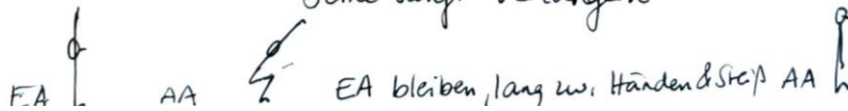 EA AA EA bleiben, lang zw. Händen & Steiß AA